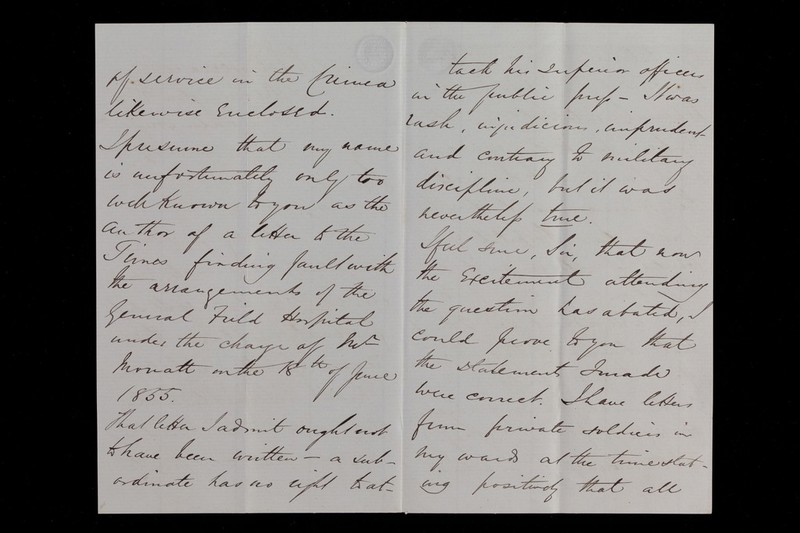 of service in the Crimea
likewise enclosed.
I presume that my name
is unfortunately only too
well known to you as the
author of a letter to the
Times finding fault with
the arrangements of the
General Field Hospital
under the charge of Mr
Mouatt on the 18th of June
1855.
That letter I admit ought not
to have been written – a sub-
ordinate has no right to at-
tack his superior officers
in the public press – It was
rash, injudicious, imprudent
and contrary to military
discipline, but it was
nevertheless true.
I feel sure, Sir, that now
the excitement attending
the question has abated, I
could prove to you that
the statements I made
were correct. I have letters
from private soldiers in
my wards at the time stat-
ing positively that all